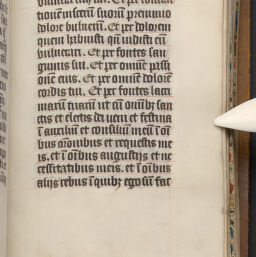 tionē uiscerū suorū precimino
dolore uulnerū. Et per dolorem
quem habuisti qn̄ uidisti eū
uulnerari. Et per fontes san
guinis sui. Et per omnē passi
onē eius. Et per omnē dolorē
cordis tui. Et per fontes lacri
marū tuarū ut cū om̄ibꝫ san
ctis et electis dei ueni et festina
ī auxiliū et consiliū meū ī om̄i
bus orōnibus et requestis me
is. et ī om̄ibus angustijs et ne
cessitatibus meis. et ī om̄ibus
alijs rebus ī quibꝫ ego sū fac